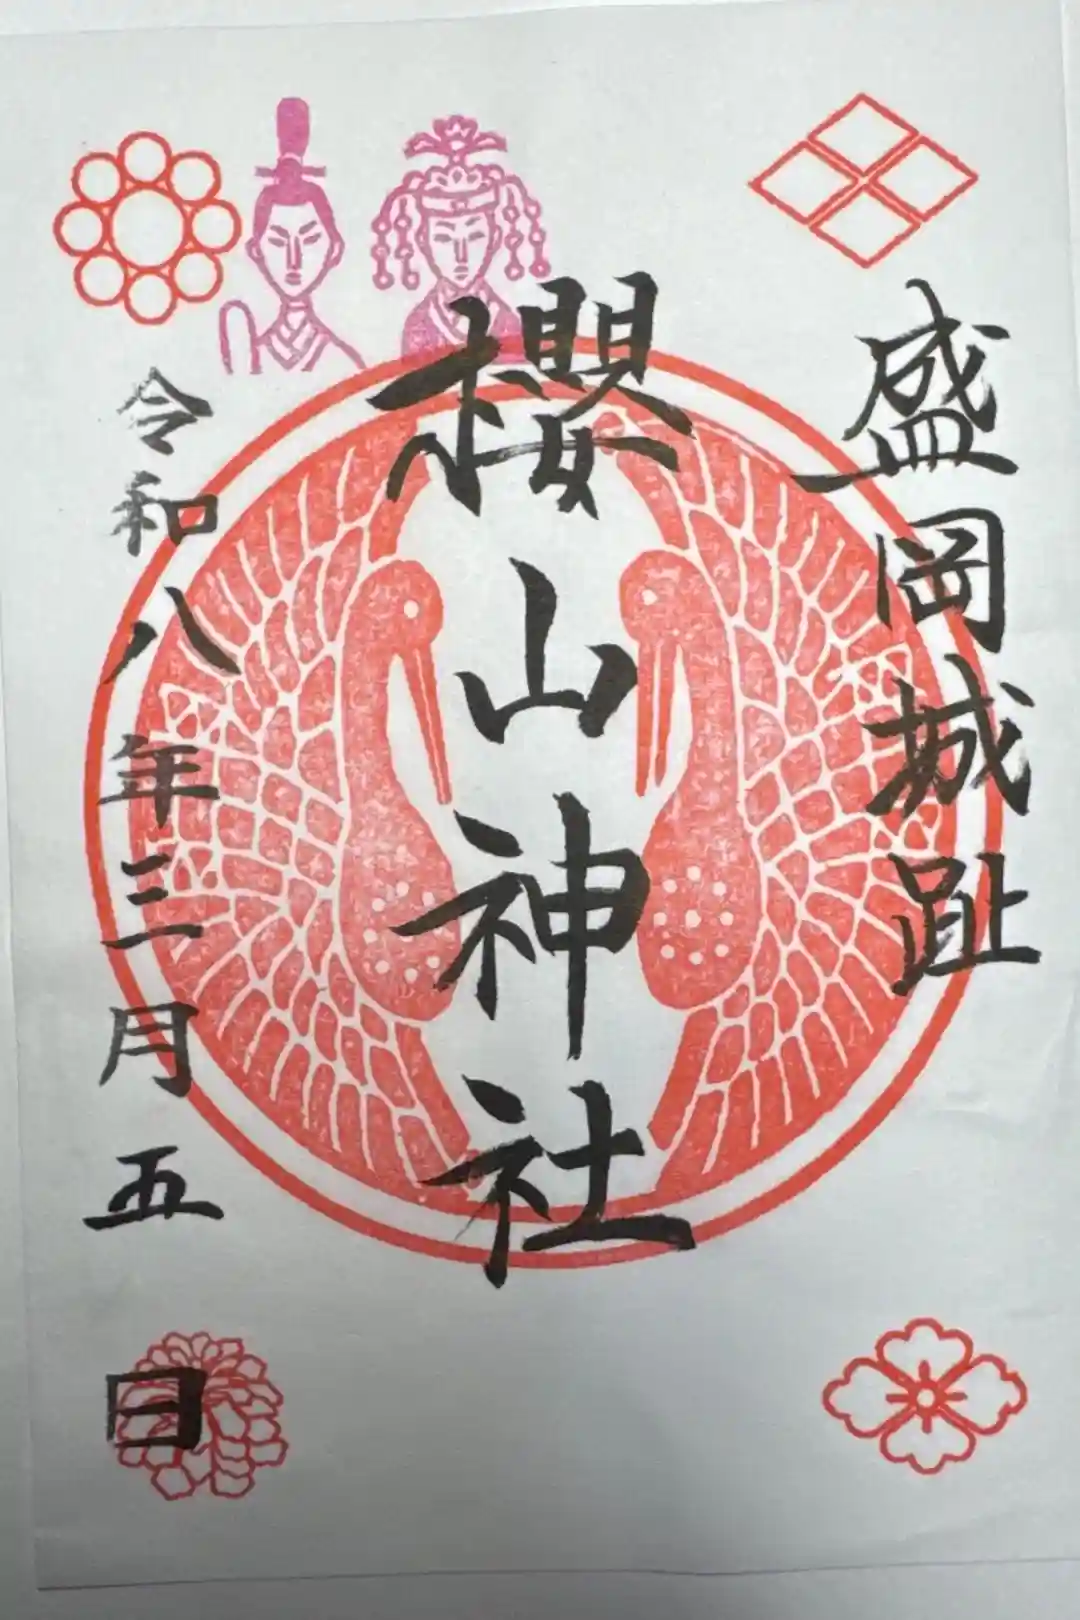 盛岡城趾
櫻山神社
令和八年三月五日